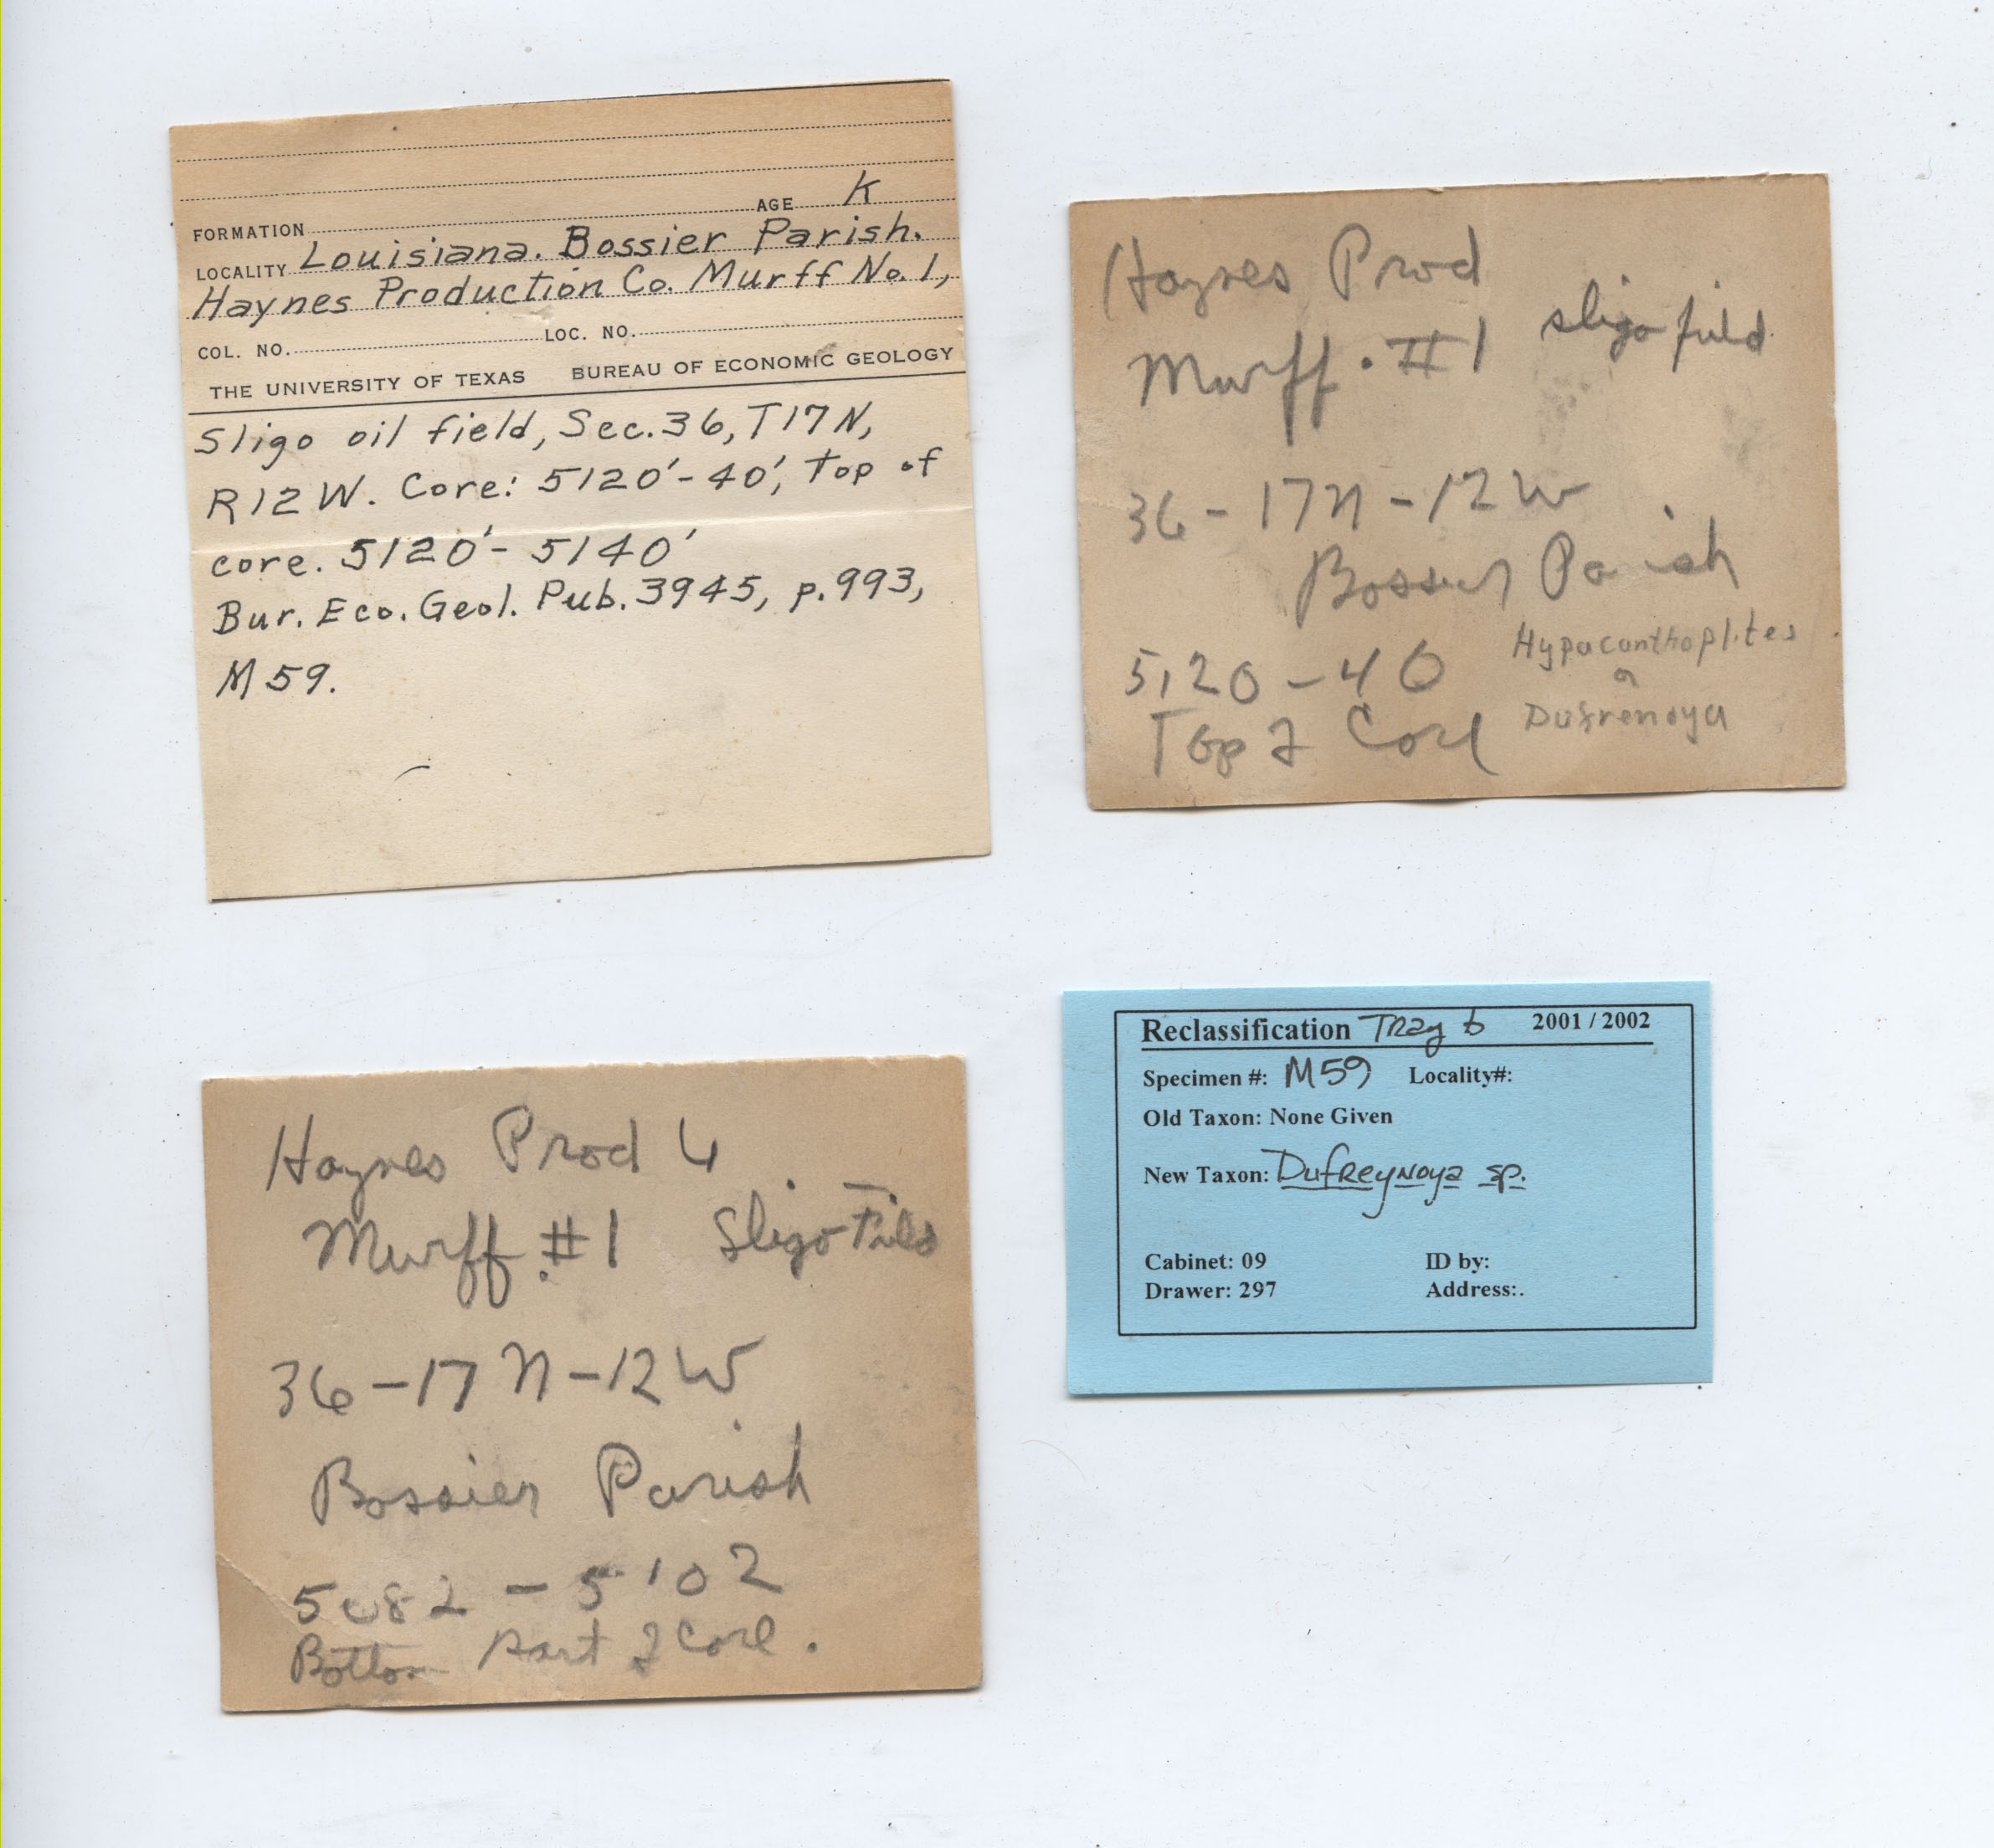 AGE K
FORMATION
LOCALITY Louisiana. Bossier Parish.
Haynes Production Co. Murff No. 1,
COL. NO. LOC. NO.
THE UNIVERSITY OF TEXAS BUREAU OF ECONOMIC GEOLOGY
Sligo oil field, Sec. 36, T17N,
R12W. Core: 5120'-40', Top of
core. 5120'- 5140'
Bur. Eco. Geol. Pub. 3945, p. 993,
M59.
Haynes Prod
Murff. #1 sligo field
36-17N-12W
Bossier Parish
5120-40 Hypacanthoplites
Top of Core Dufrenoya
Haynes Prod
Murff. #1 Sligo Field
36-17N-12W
Bossier Parish
5082-5102
Bottom part of Core.
Reclassification Tray 6 2001 / 2002
Specimen #: M59 Locality#:
Old Taxon: None Given
New Taxon: Dufreynoya sp.
Cabinet: 09 ID by:
Drawer: 297 Address:.